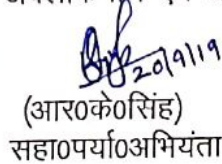 20/9/19
(आर0के0सिंह)
सहा0पर्या0अभियंता